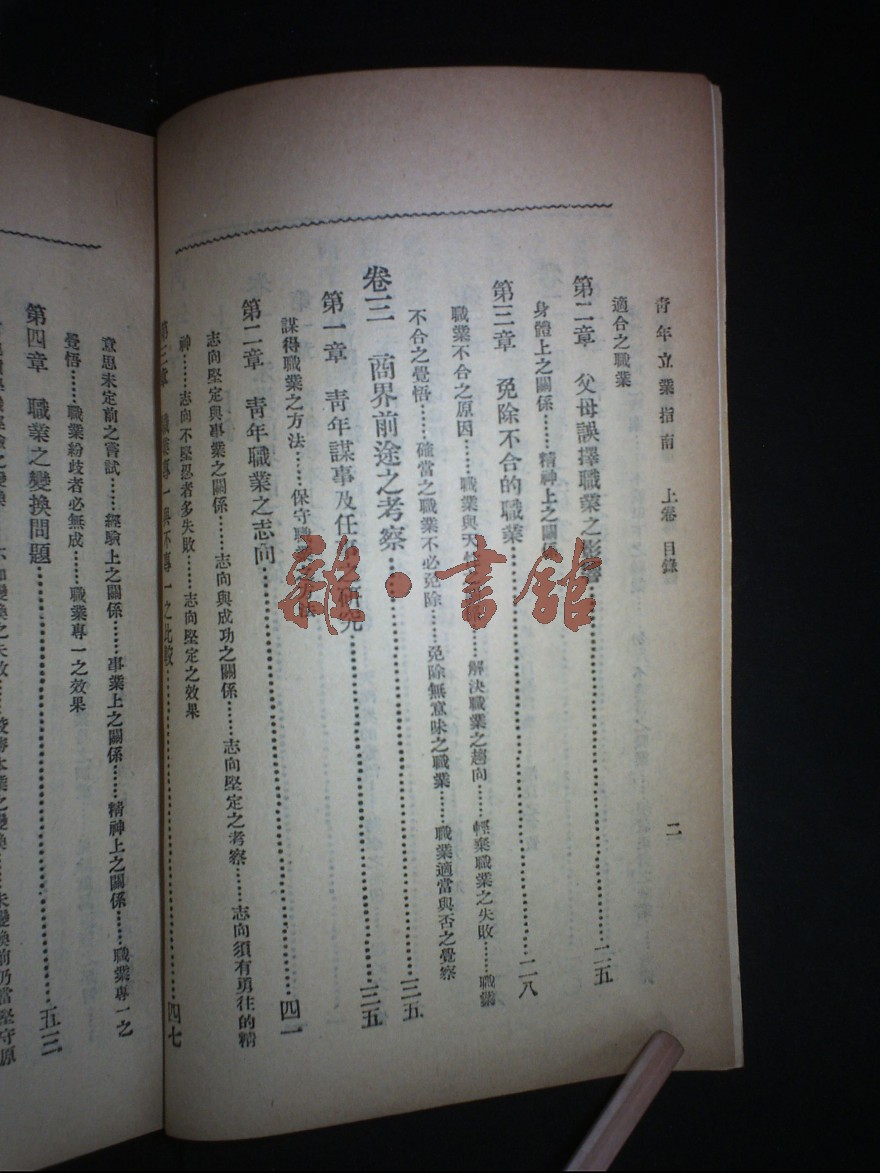 青年立業指南　上卷　目錄　二
適合之職業
第二章　父母誤擇職業之影響……二五
身體上之關係……精神上之關係
第三章　免除不合的職業……二八
職業不合之原因……職業與天……解決職業之趨向……輕棄職業之失敗……職業
不合之覺悟……確當之職業不必免除……免除無意味之職業……職業適當與否之覺察
卷三　商界前途之考察……三五
第一章　青年謀事及任事之研究……三五
謀得職業之方法……保守職業之方法
第二章　青年職業之志向……四一
志向堅定與事業之關係……志向與成功之關係……志向堅定之考察……志向須有勇往的精
神……志向不堅忍者多失敗……志向堅定之效果
第三章　職業專一與不專一之比較……四七
意思未定前之嘗試……經驗上之關係……事業上之關係……精神上之關係……職業專一之
覺悟……職業紛歧者必無成……職業專一之效果
第四章　職業之變換問題……五三
之變換……不如變換之失敗……本業之變換……未變換前仍當堅守原
雜·書館